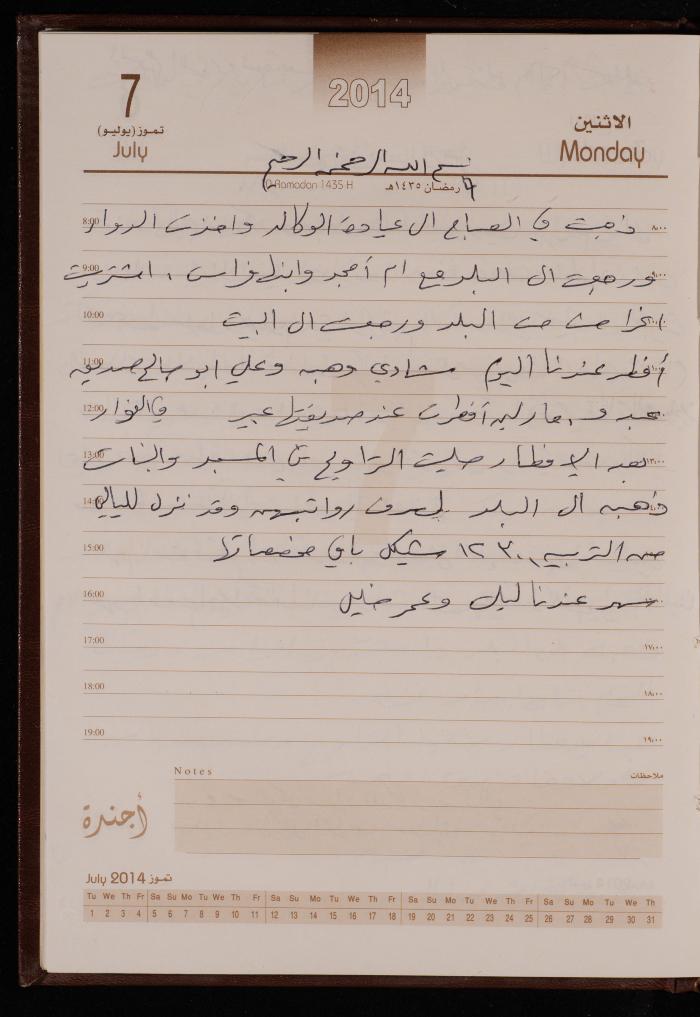 7
تموز (يوليو)
July
2014
الاثنين
Monday
بسم الله الرحمن الرحيم
Ramadan 1435 H
رمضان ١٤٣٥هـ
8:00 ذهبت في الصباح ال عيادة الوكاله واخذت الدواء ٨:٠٠
9:00 ورجعت ال البلد مع ام أمجد وابنها فراس، اشتريت ٩:٠٠
10:00 اغراض من البلد ورجعت ال البيت ١٠:٠٠
11:00 أفطر عندنا اليوم شادي وهبه وعلي ابو صالح صديق
12:00 عبد و أفطرت عند صديقتها عبير
13:00 بعد الافطار صليت التراويح في المسجد والبنات ١٣:٠٠
14:00 ذهبن ال البلد لصرف رواتبهن وقد نزل لليالي
15:00 من التربيه ١٢٣٠٠ شيكل باقي مخصصاتها
16:00 سهر عندنا ليلى وعمر خليل
17:00 ١٧:٠٠
18:00 ١٨:٠٠
19:00 ١٩:٠٠
Notes ملاحظات
أجندة
July 2014 تموز
Tu We Th Fr Sa Su Mo Tu We Th Fr Sa Su Mo Tu We Th Fr Sa Su Mo Tu We Th Fr Sa Su Mo Tu We Th
1 2 3 4 5 6 7 8 9 10 11 12 13 14 15 16 17 18 19 20 21 22 23 24 25 26 27 28 29 30 31